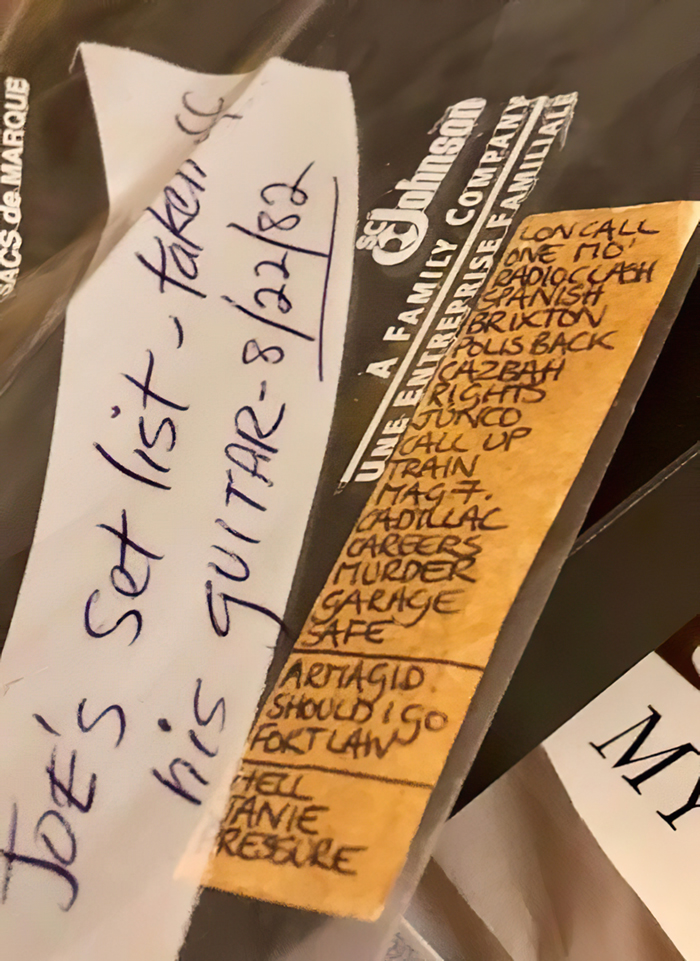 SACS de MARQUE
JOE'S Set list - taken
his GUITAR - 8/22/82
SC Johnson
A FAMILY COMPANY
UNE ENTREPRISE FAMILIALE
LONCALL
ONE MO'
RADIOCLASH
SPANISH
BRIXTON
POLIS BACK
CAZBAH
RIGHTS
JUNCO
CALL UP
TRAIN
MAG 7.
CADILLAC
CAREERS
MURDER
GARAGE
SAFE
ARMAGID.
SHOULD I GO
FORT LAW
HELL
JANIE
PRESSURE
MY